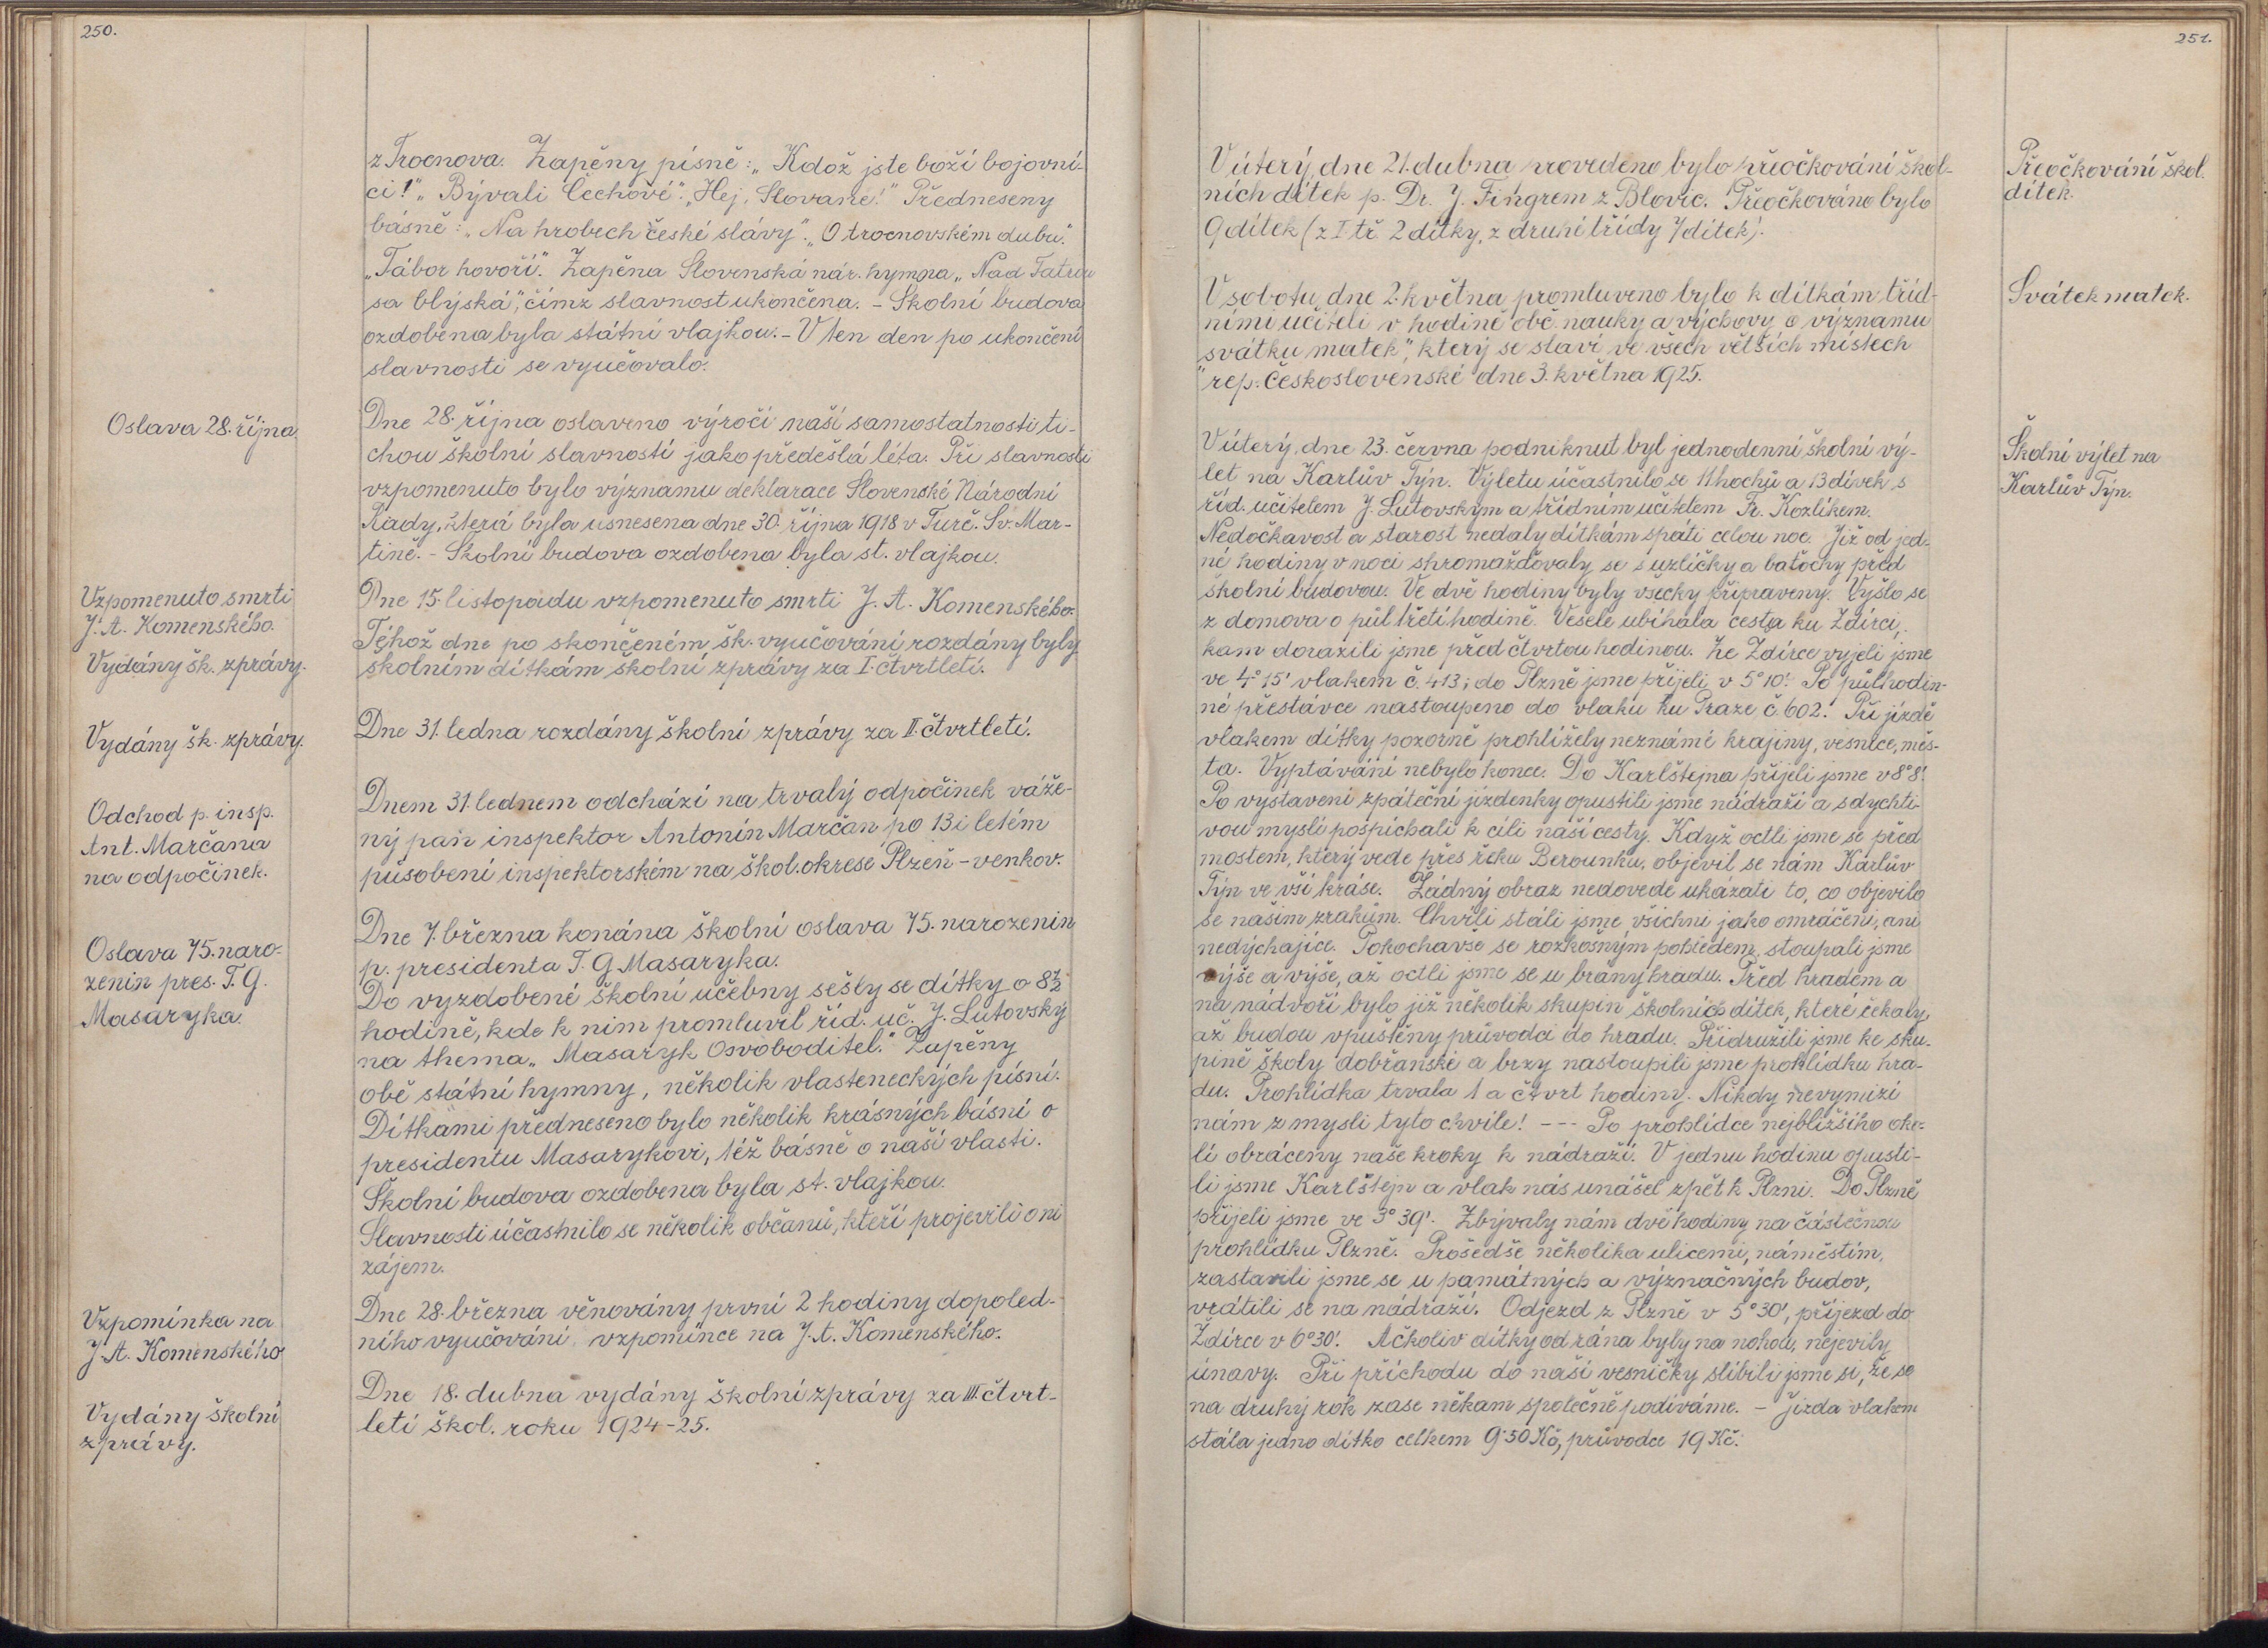 250.
z Trocnova. Zapěny písně: „Kdož jste boží bojovní-
ci!" „Bývali Čechové". „Hej, Slované!" Předneseny
básně: „Na hrobech české slávy". „O trocnovském dubu".
„Tábor hovoří". Zapěna Slovenská nár. hymna „Nad Tatrou
sa blýská", čímž slavnost ukončena. - Školní budova
ozdobena byla státní vlajkou. - V ten den po ukončení
slavnosti se vyučovalo.
Oslava 28. října.
Dne 28. října oslaveno výročí naší samostatnosti ti-
chou školní slavností jako předešlá léta. Při slavnosti
vzpomenuto bylo významu deklarace Slovenské Národní
Rady, která byla usnesena dne 30. října 1918 v Turč. Sv. Mar-
tině. - Školní budova ozdobena byla st. vlajkou.
Vzpomenuto smrti
J. A. Komenského.
Vydány šk. zprávy.
Dne 15. listopadu vzpomenuto smrti J. A. Komenského.
Téhož dne po skončeném šk. vyučování rozdány byly
školním dítkám školní zprávy za I. čtvrtletí.
Vydány šk. zprávy.
Dne 31. ledna rozdány školní zprávy za II. čtvrtletí.
Odchod p. insp.
Ant. Marčana
na odpočinek.
Dnem 31. lednem odchází na trvalý odpočinek váže-
ný pan inspektor Antonín Marčan po 13i letém
působení inspektorském na škol. okrese Plzeň - venkov.
Oslava 75. naro-
zenin pres. T. G.
Masaryka.
Dne 7. března konána školní oslava 75. narozenin
p. presidenta T. G. Masaryka.
Do vyzdobené školní učebny sešly se dítky o 8½
hodině, kde k nim promluvil říd. uč. J. Lutovský
na thema „Masaryk Osvoboditel." Zapěny
obě státní hymny, několik vlasteneckých písní.
Dítkami předneseno bylo několik krásných básní o
presidentu Masarykovi, též básně o naší vlasti.
Školní budova ozdobena byla st. vlajkou.
Slavnosti účastnilo se několik občanů, kteří projevili o ni
zájem.
Vzpomínka na
J. A. Komenského
Dne 28. března věnovány první 2 hodiny dopoled-
ního vyučování vzpomínce na J. A. Komenského.
Vydány školní
zprávy.
Dne 18. dubna vydány školní zprávy za III. čtvrt-
letí škol. roku 1924-25.
251.
Přeočkování škol.
dítek.
V úterý, dne 21. dubna provedeno bylo přeočkování škol-
ních dítek p. Dr. J. Fingrem z Blovic. Přeočkováno bylo
9 dítek (z I. tř. 2 dítky, z druhé třídy 7 dítek).
Svátek matek.
V sobotu, dne 2. května promluveno bylo k dítkám tříd-
ními učiteli v hodině obč. nauky a výchovy o významu
„svátku matek", který se slaví ve všech větších místech
rep. Československé dne 3. května 1925.
Školní výlet na
Karlův Týn.
V úterý, dne 23. června podniknut byl jednodenní školní vý-
let na Karlův Týn. Výletu účastnilo se 11 hochů a 13 dívek s
říd. učitelem J. Lutovským a třídním učitelem Fr. Kozlíkem.
Nedočkavost a starost nedaly dítkám spáti celou noc. Již od jed-
né hodiny v noci shromažďovaly se s uzlíčky a baťochy před
školní budovou. Ve dvě hodiny byly všecky připraveny. Vyšlo se
z domova o půl třetí hodině. Vesele ubíhala cesta ku Ždírci,
kam dorazili jsme před čtvrtou hodinou. Ze Ždírce vyjeli jsme
ve 4° 15' vlakem č. 413; do Plzně jsme přijeli v 5° 10'. Po půlhodin-
né přestávce nastoupeno do vlaku ku Praze č. 602. Při jízdě
vlakem dítky pozorně prohlížely neznámé krajiny, vesnice, měs-
ta. Vyptávání nebylo konce. Do Karlštejna přijeli jsme v 8° 8'.
Po vystavení zpáteční jízdenky opustili jsme nádraží a s dychti-
vou myslí pospíchali k cíli naší cesty. Když octli jsme se před
mostem, který vede přes řeku Berounku, objevil se nám Karlův
Týn ve vší kráse. Žádný obraz nedovede ukázati to, co objevilo
se našim zrakům. Chvíli stáli jsme všichni jako omráčeni, ani
nedýchajíce. Pokochavše se rozkošným pohledem, stoupali jsme
výše a výše, až octli jsme se u brány hradu. Před hradem a
na nádvoří bylo již několik skupin školních dítek, které čekaly,
až budou vpuštěny průvodci do hradu. Přidružili jsme ke sku-
pině školy dobřanské a brzy nastoupili jsme prohlídku hra-
du. Prohlídka trvala 1 a čtvrt hodiny. Nikdy nevymizí
nám z mysli tyto chvíle! --- Po prohlídce nejbližšího oko-
lí obráceny naše kroky k nádraží. V jednu hodinu opusti-
li jsme Karlštejn a vlak nás unášel zpět k Plzni. Do Plzně
přijeli jsme ve 3° 39'. Zbývaly nám dvě hodiny na částečnou
prohlídku Plzně. Prošedše několika ulicemi, náměstím,
zastavili jsme se u památných a význačných budov,
vrátili se na nádraží. Odjezd z Plzně v 5° 30', příjezd do
Ždírce v 6° 30'. Ačkoliv dítky od rána byly na nohou, nejevily
únavy. Při příchodu do naší vesničky slíbili jsme si, že se
na druhý rok zase někam společně podíváme. - Jízda vlakem
stála jedno dítko celkem 9·50 Kč, průvodce 19 Kč.